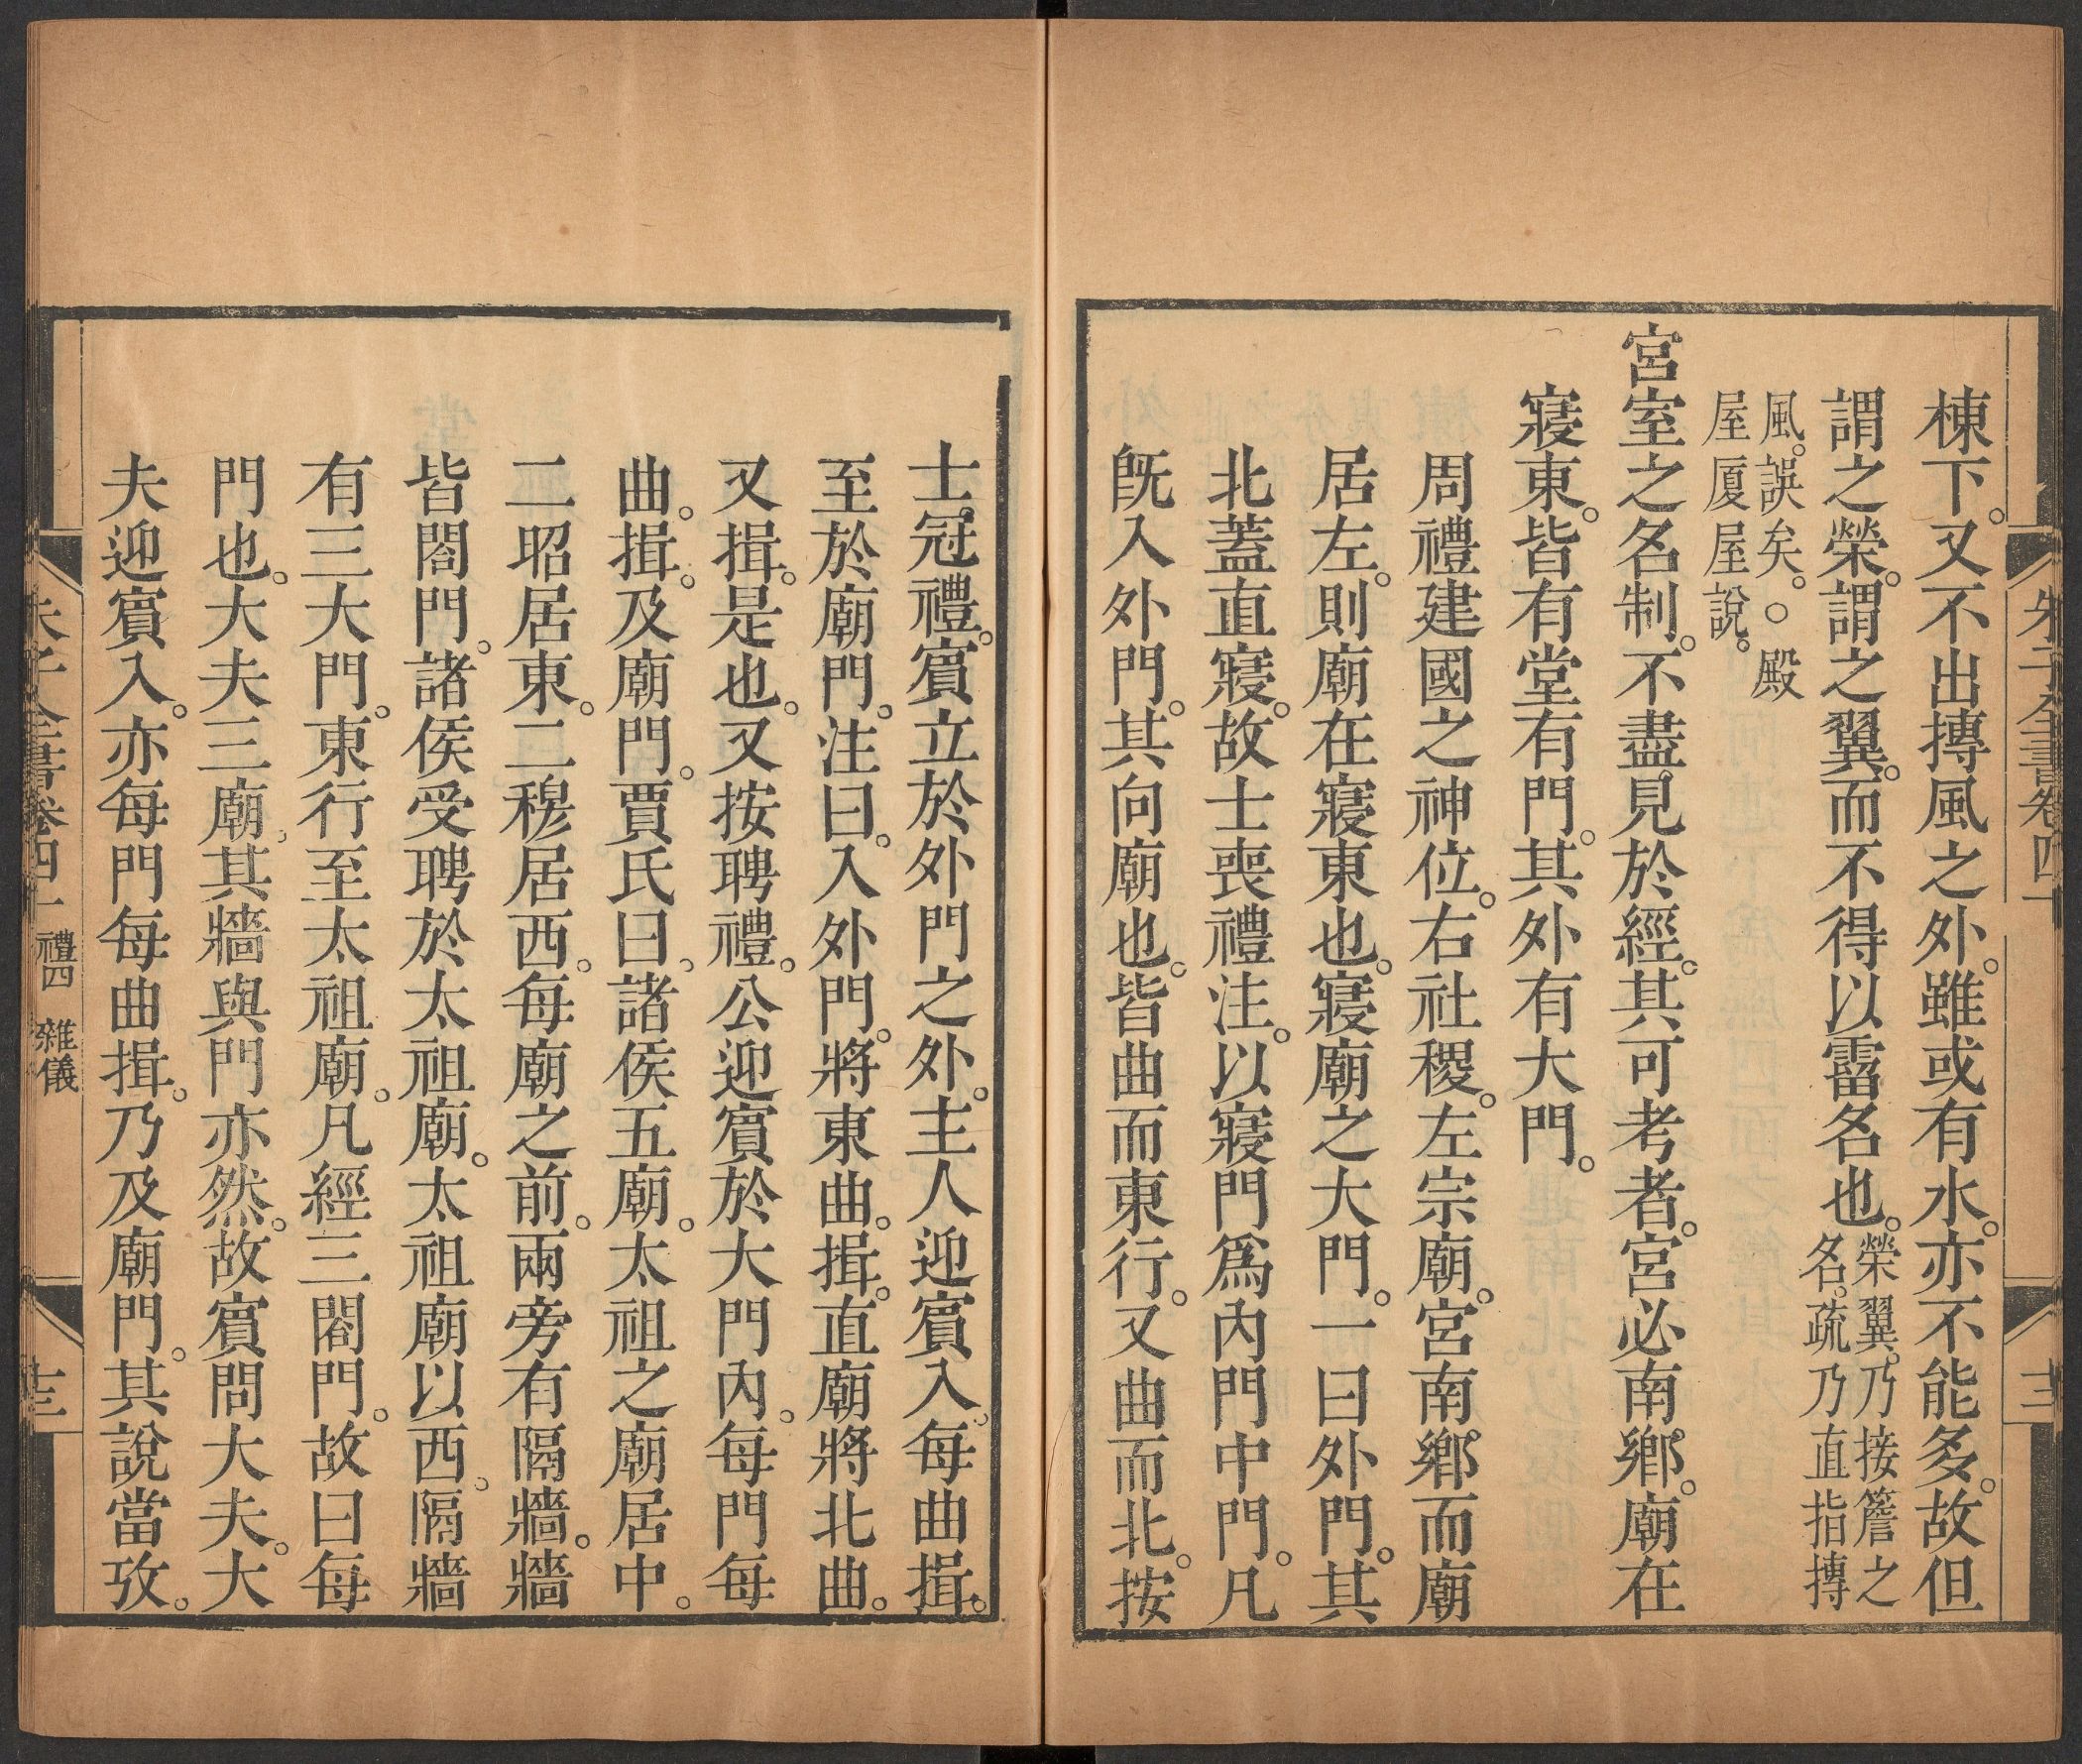 朱子全書卷四十 十二
棟下。又不出摶風之外。雖或有水。亦不能多。故但
謂之榮。謂之翼。而不得以霤名也。榮翼。乃接簷之
名。疏乃直指摶
風。誤矣。○殿
屋厦屋說。
宮室之名制。不盡見於經。其可考者。宮必南鄉。廟在
寢東。皆有堂有門。其外有大門。
周禮建國之神位。右社稷。左宗廟。宮南鄉而廟
居左。則廟在寢東也。寢廟之大門。一曰外門。其
北蓋直寢。故士喪禮注。以寢門爲內門中門。凡
旣入外門。其向廟也。皆曲而東行。又曲而北。按
士冠禮。賓立於外門之外。主人迎賓入。每曲揖。
至於廟門。注曰。入外門。將東曲。揖。直廟將北曲。
又揖。是也。又按聘禮。公迎賓於大門內。每門每
曲。揖。及廟門。賈氏曰。諸侯五廟。太祖之廟居中。
二昭居東。二穆居西。每廟之前。兩旁有隔牆。牆
皆閤門。諸侯受聘於太祖廟。太祖廟以西。隔牆
有三大門。東行至太祖廟。凡經三閤門。故曰每
門也。大夫三廟。其牆與門亦然。故賓問大夫。大
夫迎賓入。亦每門每曲揖。乃及廟門。其說當攷。
朱子全書卷四十一 禮四 雜儀 十三